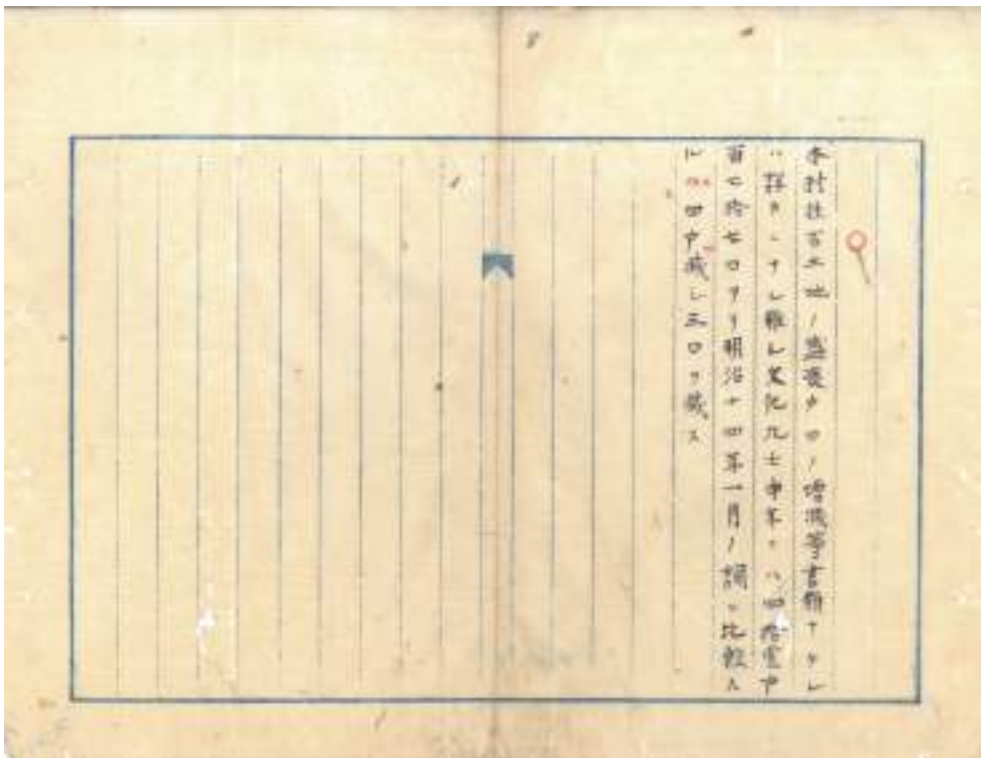 本村往古土地ノ盛衰戸口ノ増減等書類ナケレ
ハ詳カニナシ難シ文化九壬申年ニハ四拾壱戸
百七拾七口アリ明治十四年一月ノ調ニ比較ス
ルニ四戸減シ三口ヲ減ス